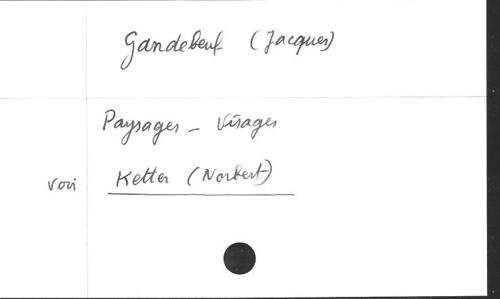 Gandebeuf (Jacques)
Paysages - Visages
voir Ketter (Norbert)